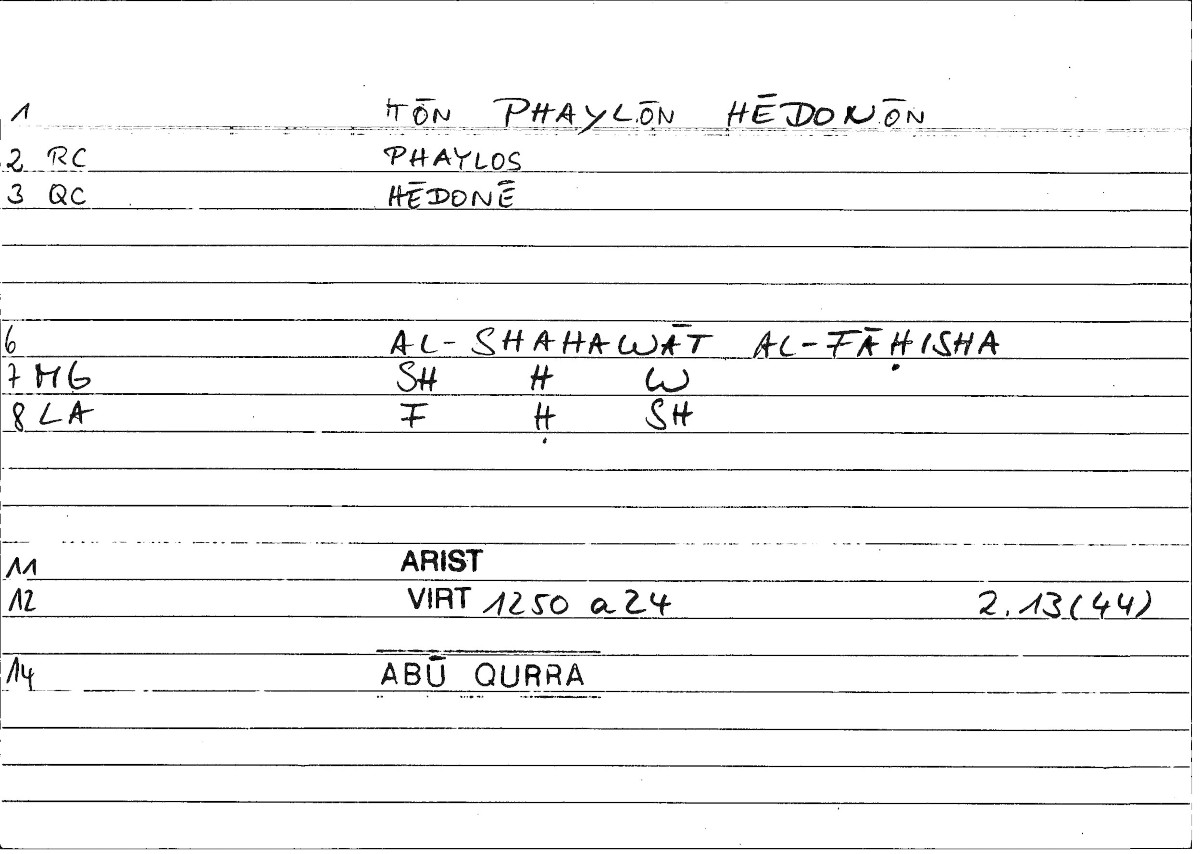 1 TŌN PHAYLŌN HĒDONŌN
2 RC PHAYLOS
3 QC HĒDONĒ
6 AL-SHAHAWĀT AL-FĀḤISHA
7 MG SH H W
8 LA F Ḥ SH
11 ARIST
12 VIRT 1250 a 24 2.13(44)
14 ABŪ QURRA